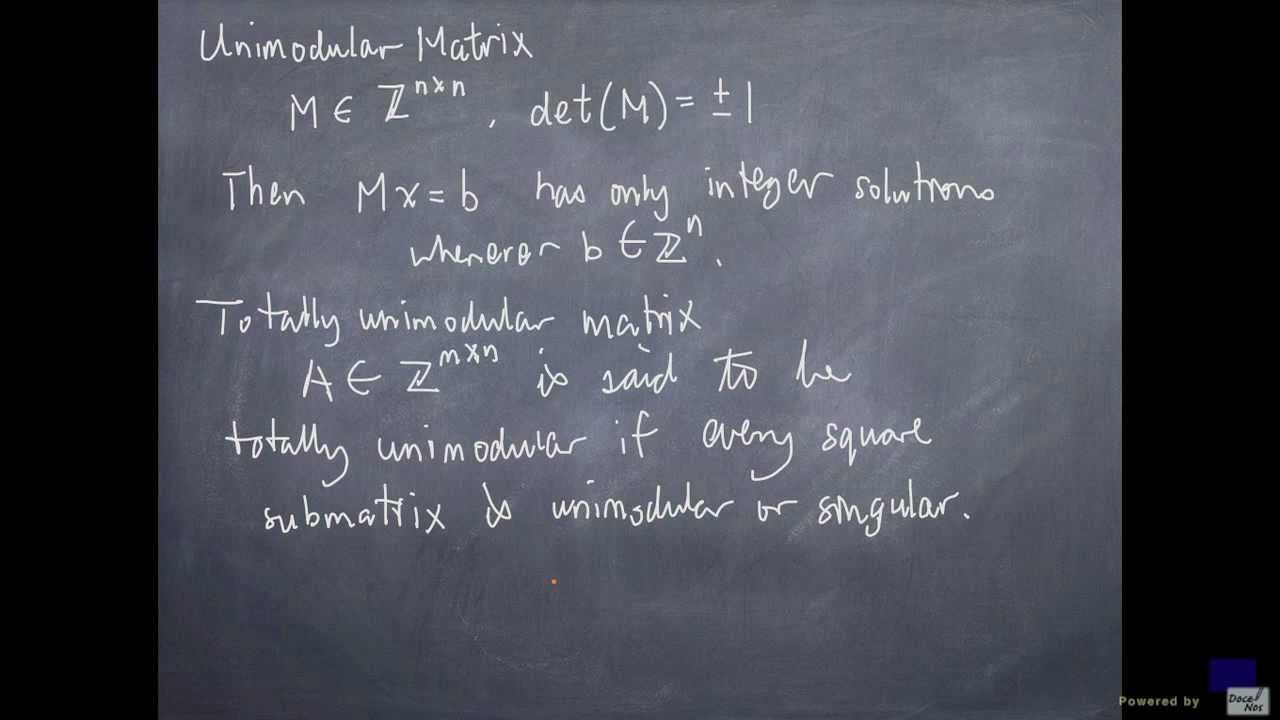 Unimodular Matrix
M ∈ ℤ^{n×n}, det(M) = ±1
Then Mx = b has only integer solutions
whenever b ∈ ℤ^n.
Totally unimodular matrix
A ∈ ℤ^{m×n} is said to be
totally unimodular if every square
submatrix is unimodular or singular.
Powered by
Doce
Nos